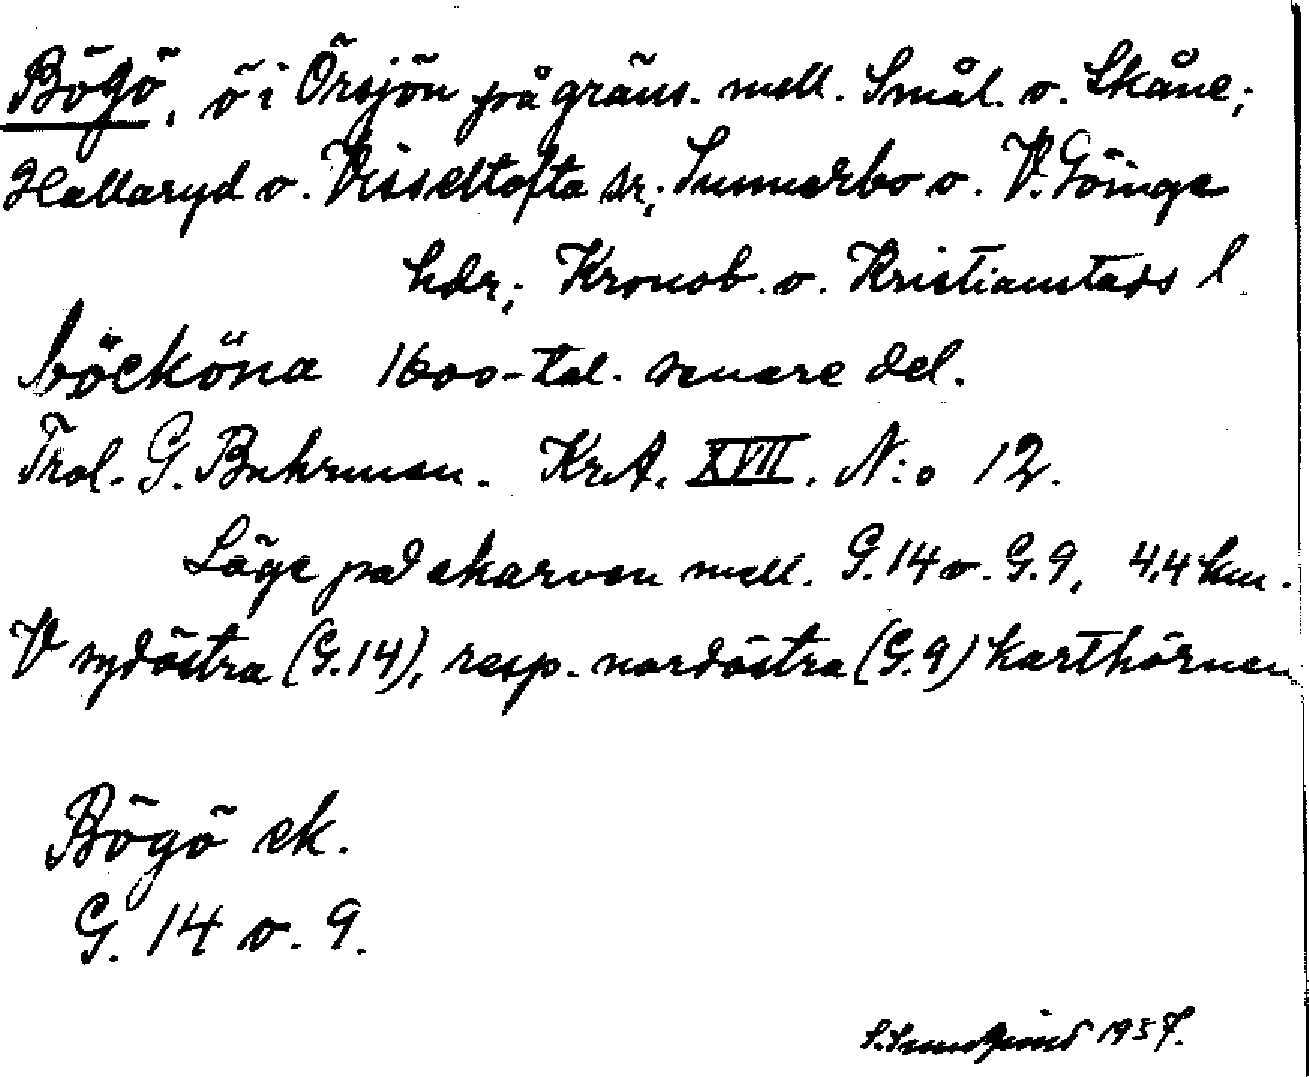 Bögö, ö i Örsjön på gräns. mell. Smål. o. Skåne;
Hallaryd o. Visseltofta sr; Sunnerbo o. V. Göinge
hdr; Kronob. o. Kristianstads l
böeköna 1600-tal. senare del.
Trol. G. Buhrman. KrA. XVII. N:o 12.
Läge på skarven mell. G.14 o. G.9, 4,4 km.
V sydöstra (G.14), resp. nordöstra (G.9) karthörnen
Bögö ek.
G. 14 o. 9.
1937.